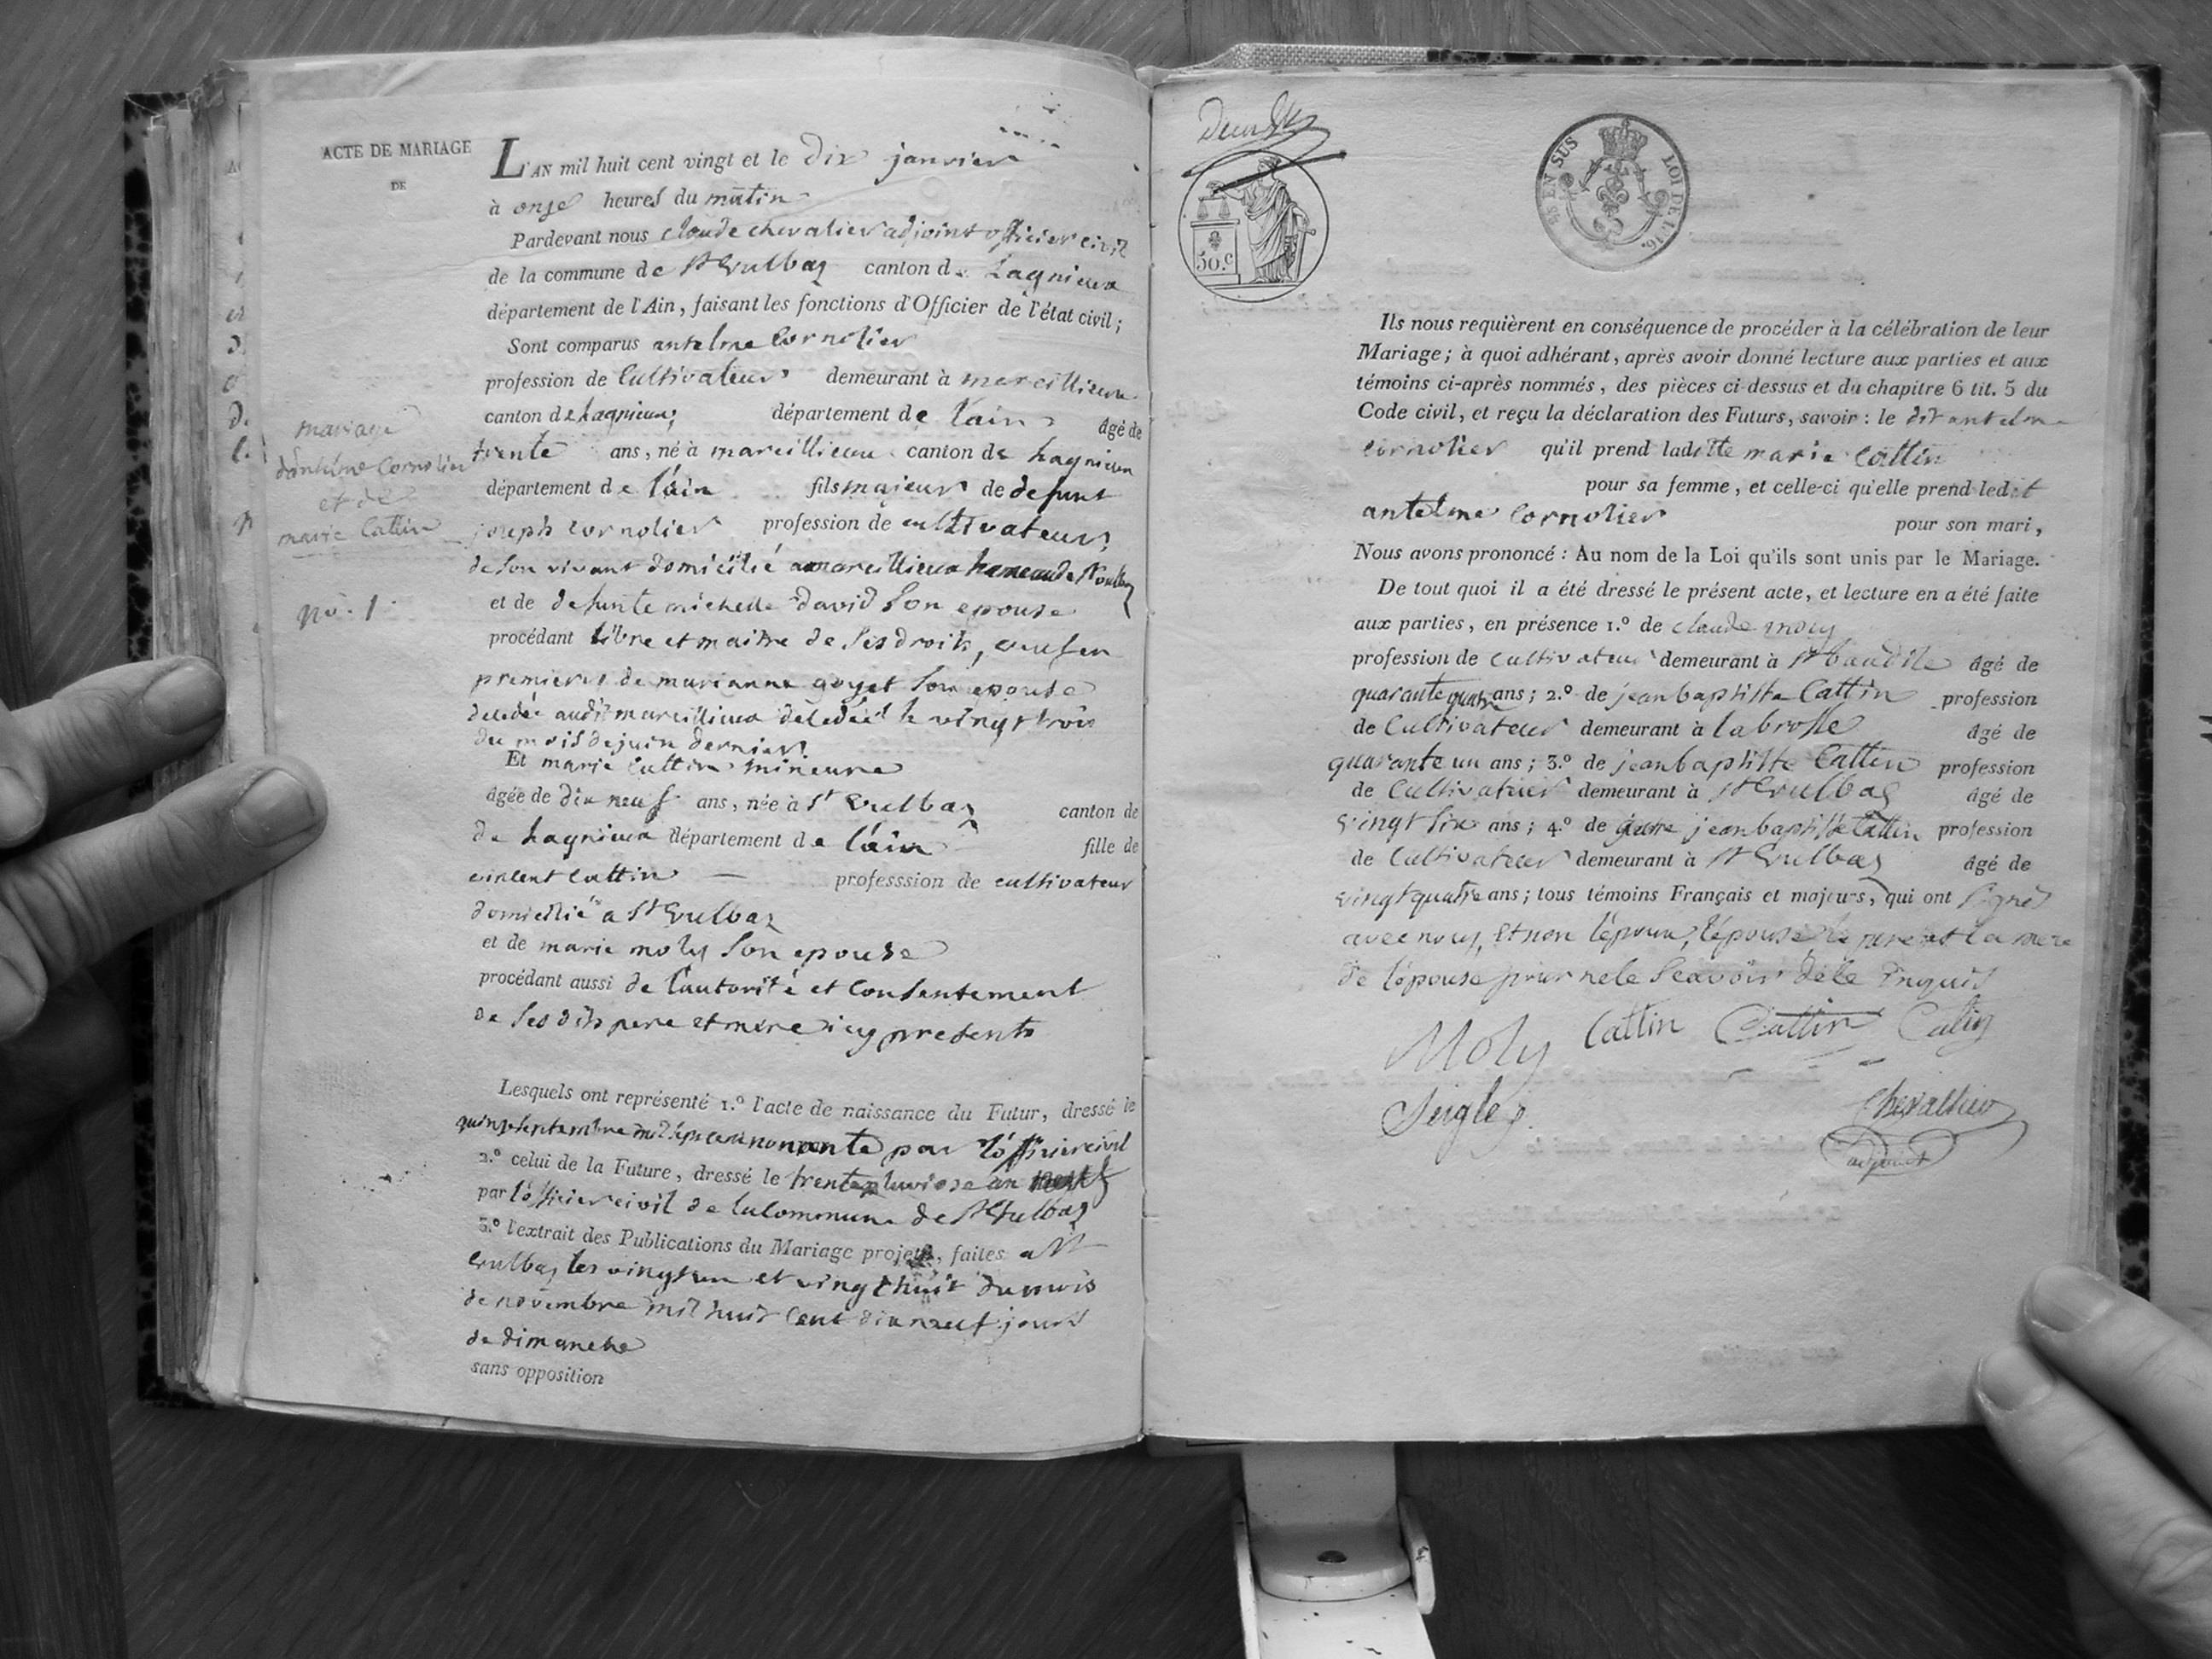 ACTE DE MARIAGE
DE
mariage
d'antelme Cornolier
et de
marie Cattin
no. 1
L'AN mil huit cent vingt et le dix janvier
à onze heures du matin
Pardevant nous claude chevalier adjoint officier civil
de la commune de St Vulbaz canton de Lagnieux
département de l'Ain, faisant les fonctions d'Officier de l'état civil;
Sont comparus antelme Cornolier
profession de Cultivateur demeurant à marcillieux
canton de Lagnieux; département de lain âgé de
trente ans, né à marcillieux canton de Lagnieux
département de láin fils majeur de defunt
joseph Cornolier profession de cultivateur,
de son vivant domicilié a marcillieux hameau de St vulbaz
et de defunte michelle david Son epouse
procédant libre et maitre de ses droits, veuf en
premieres de marianne goyet Son epouse
décédée audit marcillieux décédée le vingt trois
du mois de juin dernier
Et marie Cattin mineure
âgée de dix neuf ans, née à St Vulbaz canton de
de Lagnieux département de láin fille de
vincent Cattin professsion de cultivateur
domicilié a St Vulbaz
et de marie moly Son epouse
procédant aussi de l'autorité et Consentement
de ses dits pere et mere icy presents
Lesquels ont représenté 1.º l'acte de naissance du Futur, dressé le
quinze septembre mil sept cent nonante par l'officier civil
2.º celui de la Future, dressé le trente pluviose an neuf
par l'officier civil de la Commune de St Vulbaz
3.º l'extrait des Publications du Mariage projeté, faites a St
Vulbaz les vingt un et vingt huit du mois
de novembre mil huit Cent dix neuf jours
de dimanche
sans opposition
50.c
EN SUS
LOI DE 1816.
Ils nous requièrent en conséquence de procéder à la célébration de leur
Mariage; à quoi adhérant, après avoir donné lecture aux parties et aux
témoins ci-après nommés, des pièces ci-dessus et du chapitre 6 tit. 5 du
Code civil, et reçu la déclaration des Futurs, savoir: le dit antelme
Cornolier qu'il prend laditte marie Cattin
pour sa femme, et celle-ci qu'elle prend ledit
antelme Cornolier pour son mari,
Nous avons prononcé: Au nom de la Loi qu'ils sont unis par le Mariage.
De tout quoi il a été dressé le présent acte, et lecture en a été faite
aux parties, en présence 1.º de claude moly
profession de Cultivateur demeurant à St baudille âgé de
quarante quatre ans; 2.º de jean baptiste Cattin profession
de Cultivateur demeurant à la brosse âgé de
quarante un ans; 3.º de jean baptiste Cattin profession
de Cultivateur demeurant à St Vulbaz âgé de
vingt six ans; 4.º de jean baptiste Cattin profession
de Cultivateur demeurant à St Vulbaz âgé de
vingt quatre ans; tous témoins Français et majeurs, qui ont signés
avec nous, et non l'époux, l'épouse, le pere et la mere
de l'épouse pour ne le Scavoir de ce Enquis
Moly Cattin Cattin Catin
Seigle
Chevallier
adjoint